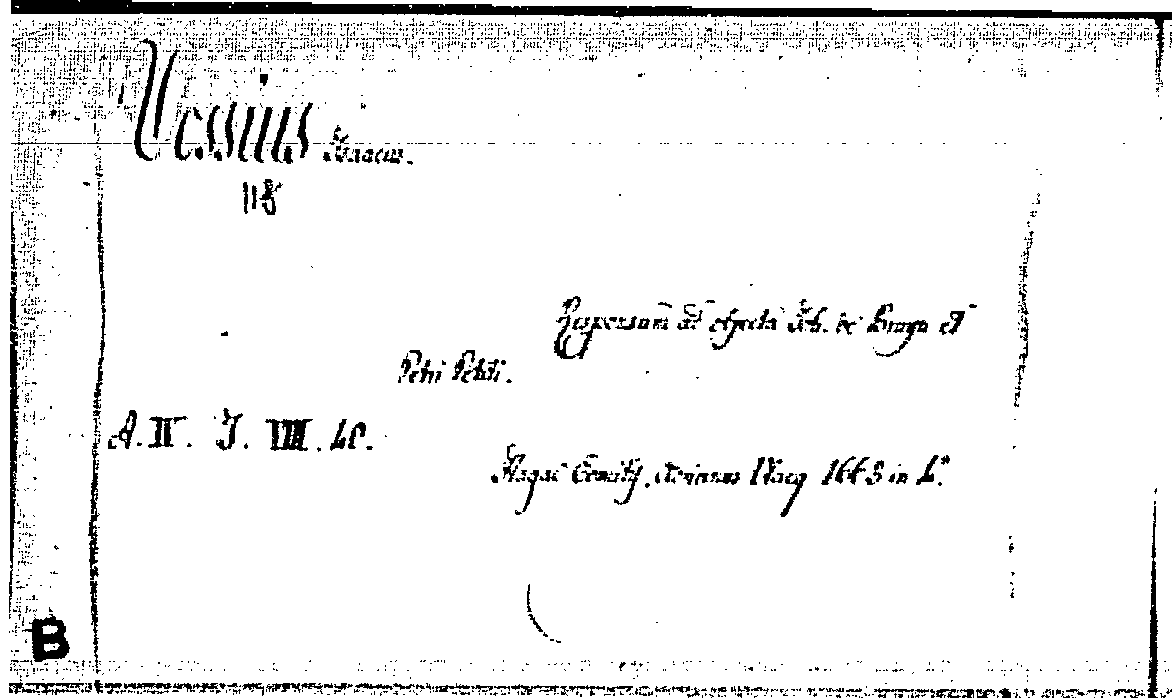 Vossius Isaacus.
118
Responsum ad objecta Joh. de Bruyn et
Petri Petiti.
A. II. J. VIII. 40.
Hagae Comitis, Adrianus Vlacq 1663 in 4°.
B